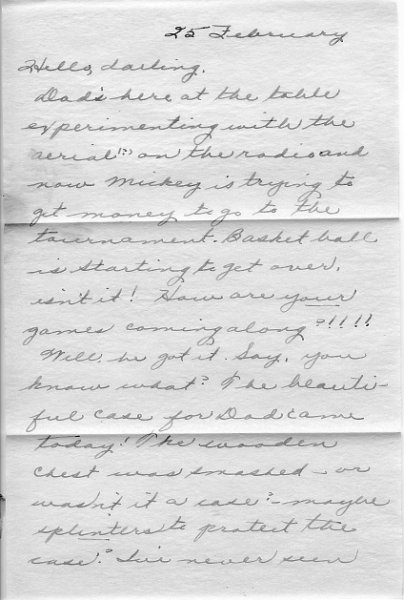 25 February
Hello, darling.
Dad's here at the table
experimenting with the
aerial(?) on the radio and
now Mickey is trying to
get money to go to the
tournament. Basket ball
is starting to get over,
isn't it! How are your
games coming along?!!!!
Well, he got it. Say, you
know what? The beauti-
ful case for Dad came
today! The wooden
chest was smashed - or
wasn't it a case? - maybe
splinters to protect the
case? I've never seen